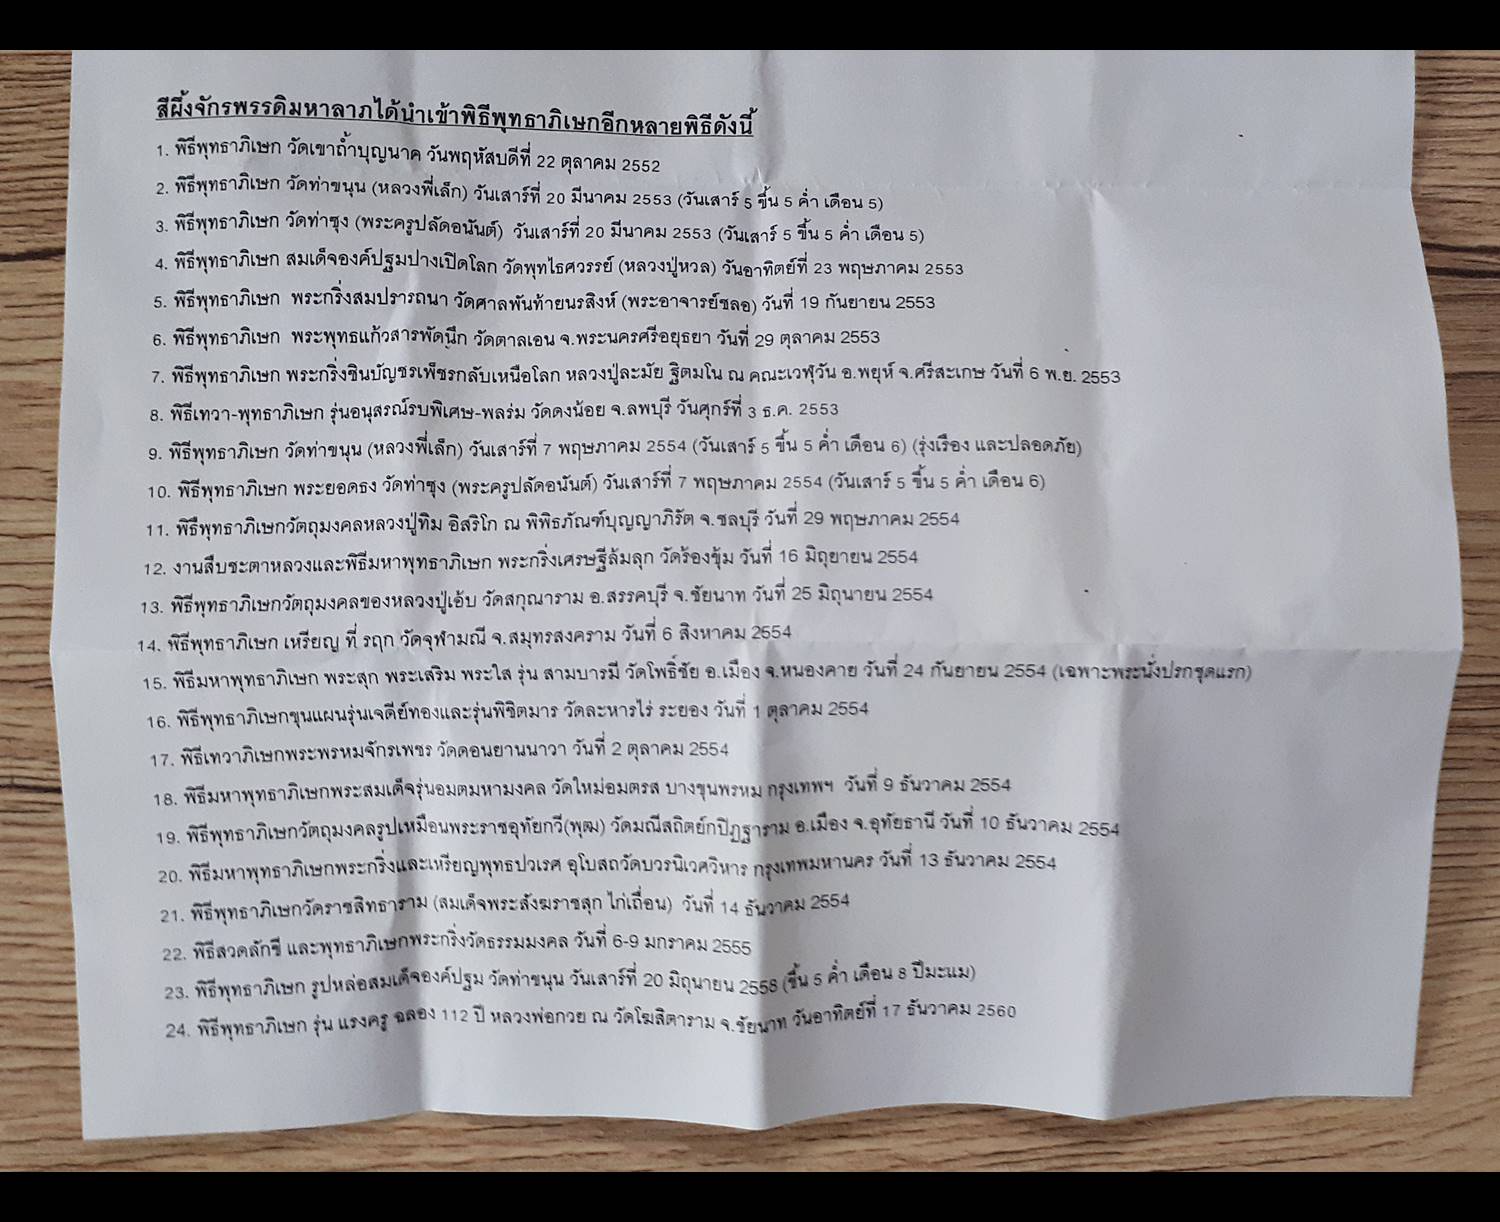 สีผึ้งจักรพรรดิมหาลาภได้นำเข้าพิธีพุทธาภิเษกอีกหลายพิธีดังนี้
1. พิธีพุทธาภิเษก วัดเขาถ้ำบุญนาค วันพฤหัสบดีที่ 22 ตุลาคม 2552
2. พิธีพุทธาภิเษก วัดท่าขนุน (หลวงพี่เล็ก) วันเสาร์ที่ 20 มีนาคม 2553 (วันเสาร์ 5 ขึ้น 5 ค่ำ เดือน 5)
3. พิธีพุทธาภิเษก วัดท่าซุง (พระครูปลัดอนันต์) วันเสาร์ที่ 20 มีนาคม 2553 (วันเสาร์ 5 ขึ้น 5 ค่ำ เดือน 5)
4. พิธีพุทธาภิเษก สมเด็จองค์ปฐมปางเปิดโลก วัดพุทไธศวรรย์ (หลวงปู่หวล) วันอาทิตย์ที่ 23 พฤษภาคม 2553
5. พิธีพุทธาภิเษก พระกริ่งสมปรารถนา วัดศาลพันท้ายนรสิงห์ (พระอาจารย์ชลอ) วันที่ 19 กันยายน 2553
6. พิธีพุทธาภิเษก พระพุทธแก้วสารพัดนึก วัดตาลเอน จ.พระนครศรีอยุธยา วันที่ 29 ตุลาคม 2553
7. พิธีพุทธาภิเษก พระกริ่งชินบัญชรเพ็ชรกลับเหนือโลก หลวงปู่ละมัย ฐิตมโน ณ คณะเวฬุวัน อ.พยุห์ จ.ศรีสะเกษ วันที่ 6 พ.ย. 2553
8. พิธีเทวา-พุทธาภิเษก รุ่นอนุสรณ์รบพิเศษ-พลร่ม วัดดงน้อย จ.ลพบุรี วันศุกร์ที่ 3 ธ.ค. 2553
9. พิธีพุทธาภิเษก วัดท่าขนุน (หลวงพี่เล็ก) วันเสาร์ที่ 7 พฤษภาคม 2554 (วันเสาร์ 5 ขึ้น 5 ค่ำ เดือน 6) (รุ่งเรือง และปลอดภัย)
10. พิธีพุทธาภิเษก พระยอดธง วัดท่าซุง (พระครูปลัดอนันต์) วันเสาร์ที่ 7 พฤษภาคม 2554 (วันเสาร์ 5 ขึ้น 5 ค่ำ เดือน 6)
11. พิธีพุทธาภิเษกวัตถุมงคลหลวงปู่ทิม อิสริโก ณ พิพิธภัณฑ์บุญญาภิรัต จ.ชลบุรี วันที่ 29 พฤษภาคม 2554
12. งานสืบชะตาหลวงและพิธีมหาพุทธาภิเษก พระกริ่งเศรษฐีล้มลุก วัดร้องขุ้ม วันที่ 16 มิถุยายน 2554
13. พิธีพุทธาภิเษกวัตถุมงคลของหลวงปู่เอ้บ วัดสกุณาราม อ.สรรคบุรี จ.ชัยนาท วันที่ 25 มิถุนายน 2554
14. พิธีพุทธาภิเษก เหรียญ ที่ รฤก วัดจุฬามณี จ.สมุทรสงคราม วันที่ 6 สิงหาคม 2554
15. พิธีมหาพุทธาภิเษก พระสุก พระเสริม พระใส รุ่น สามบารมี วัดโพธิ์ชัย อ.เมือง จ.หนองคาย วันที่ 24 กันยายน 2554 (เฉพาะพระนั่งปรกชุดแรก)
16. พิธีพุทธาภิเษกขุนแผนรุ่นเจดีย์ทองและรุ่นพิชิตมาร วัดละหารไร่ ระยอง วันที่ 1 ตุลาคม 2554
17. พิธีเทวาภิเษกพระพรหมจักรเพชร วัดดอนยานนาวา วันที่ 2 ตุลาคม 2554
18. พิธีมหาพุทธาภิเษกพระสมเด็จรุ่นอมตมหามงคล วัดใหม่อมตรส บางขุนพรหม กรุงเทพฯ วันที่ 9 ธันวาคม 2554
19. พิธีพุทธาภิเษกวัตถุมงคลรูปเหมือนพระราชอุทัยกวี(พุฒ) วัดมณีสถิตย์กปิฏฐาราม อ.เมือง จ.อุทัยธานี วันที่ 10 ธันวาคม 2554
20. พิธีมหาพุทธาภิเษกพระกริ่งและเหรียญพุทธปวเรศ อุโบสถวัดบวรนิเวศวิหาร กรุงเทพมหานคร วันที่ 13 ธันวาคม 2554
21. พิธีพุทธาภิเษกวัดราชสิทธาราม (สมเด็จพระสังฆราชสุก ไก่เถื่อน) วันที่ 14 ธันวาคม 2554
22. พิธีสวดลักขี และพุทธาภิเษกพระกริ่งวัดธรรมมงคล วันที่ 6-9 มกราคม 2555
23. พิธีพุทธาภิเษก รูปหล่อสมเด็จองค์ปฐม วัดท่าขนุน วันเสาร์ที่ 20 มิถุนายน 2558 (ขึ้น 5 ค่ำ เดือน 8 ปีมะแม)
24. พิธีพุทธาภิเษก รุ่น แรงครู ฉลอง 112 ปี หลวงพ่อกวย ณ วัดโฆสิตาราม จ.ชัยนาท วันอาทิตย์ที่ 17 ธันวาคม 2560